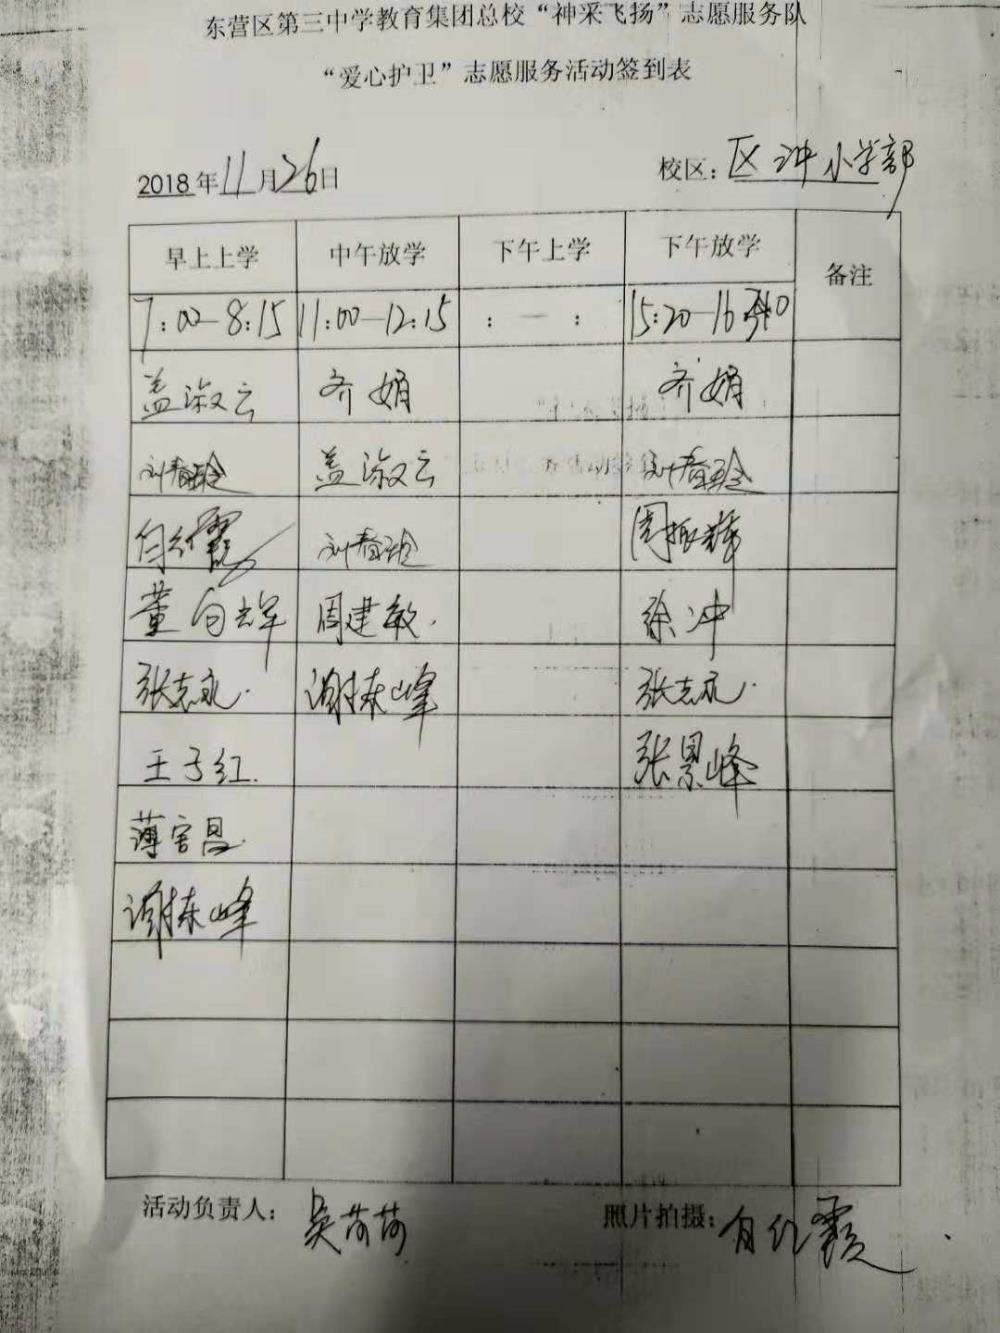 东营区第三中学教育集团总校“神采飞扬”志愿服务队
“爱心护卫”志愿服务活动签到表
2018年11月26日 校区：区冲小学部
早上上学 中午放学 下午上学 下午放学 备注
7:00-8:15 11:00-12:15 : — : 15:20-16
盖淑云 齐娟 齐娟
刘春玲 盖淑云 刘春玲
刘春玲 周振辉
董向辉 周建敏. 徐冲
张志永. 谢栋峰 张志永.
王子红. 张景峰
薄官昌.
谢栋峰
活动负责人：吴苟苟 照片拍摄：